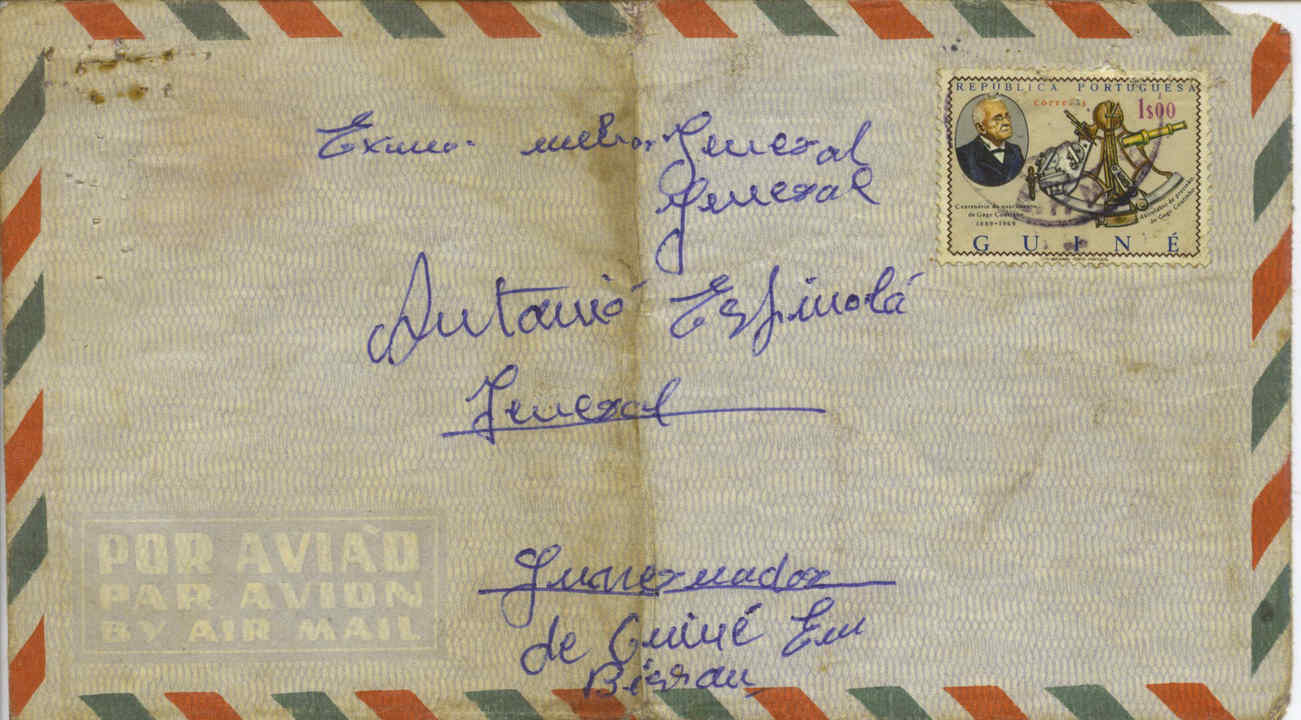 REPÚBLICA PORTUGUESA
CORREIOS
1$00
Centenário do nascimento
de Gago Coutinho
1869-1969
Astrolábio de precisão
de Gago Coutinho
GUINÉ
Exmo. General
General
Antonió Espinolá
General
POR AVIÃO
PAR AVION
BY AIR MAIL
de Guiné Em
Bissau